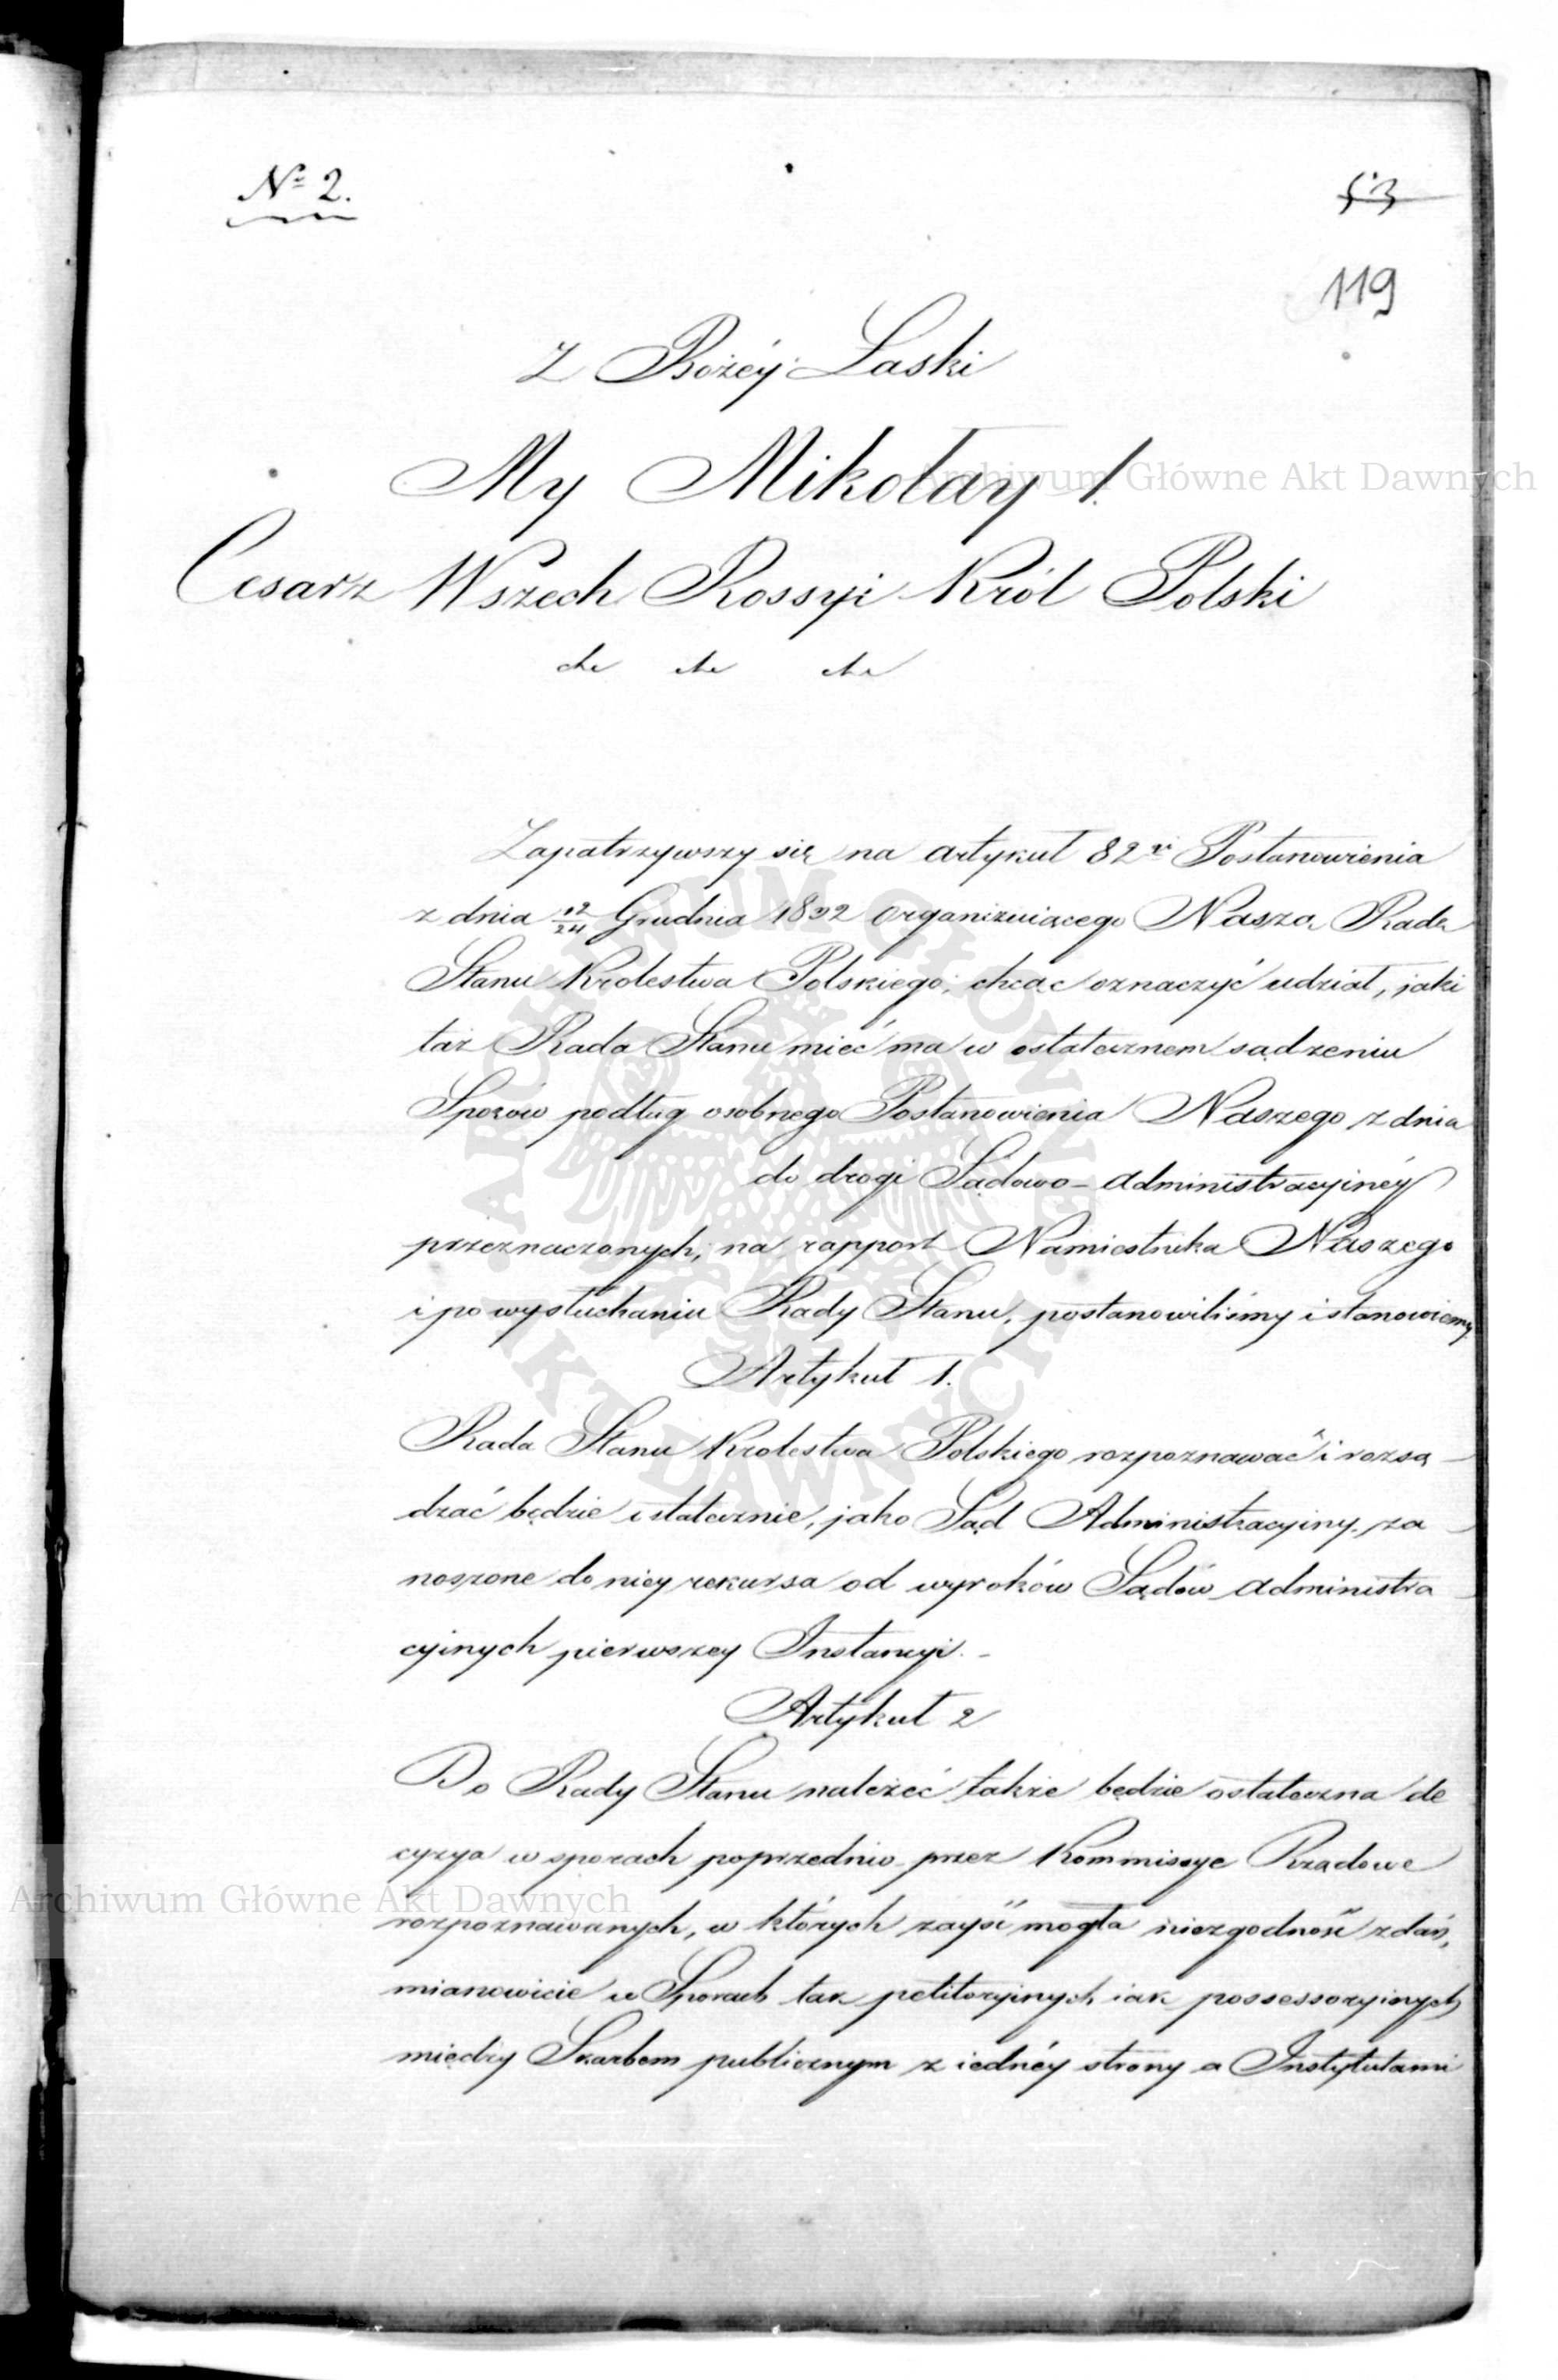 № 2.
53
119
Z Bożéy Łaski
My Mikołay I.
Cesarz Wszech Rossyi Król Polski
etc etc etc
Zapatrzywszy się na artykuł 82gi Postanowienia
z dnia 12/24 Grudnia 1832 organizuiącego Naszą Radę
Stanu Królestwa Polskiego; chcąc oznaczyć udział, jaki
taż Rada Stanu mieć ma w ostatecznem sądzeniu
Sporów podług osobnego Postanowienia Naszego z dnia
do drogi Sądowo-Administracyinéy
przeznaczonych, na rapport Namiestnika Naszego
i po wysłuchaniu Rady Stanu, postanowiliśmy i stanowiemy
Artykuł 1.
Rada Stanu Królestwa Polskiego rozpoznawać i rozsą-
dzać będzie ostatecznie, jako Sąd Administracyiny, za-
noszone do niey rekursa od wyroków Sądów administra-
cyinych pierwszey Instancyi.-
Artykuł 2
Do Rady Stanu należeć także będzie ostateczna de
cyzya w sporach poprzednio przez Kommissye Rządowe
rozpoznawanych, w których zayść mogła niezgodność zdań,
mianowicie w Sporach tak petitoryinych iak possessoryinych
między Skarbem publicznym z iednéy strony a Instytutami
Archiwum Główne Akt Dawnych
Archiwum Główne Akt Dawnych
ARCHIWUM GŁÓWNE AKT DAWNYCH